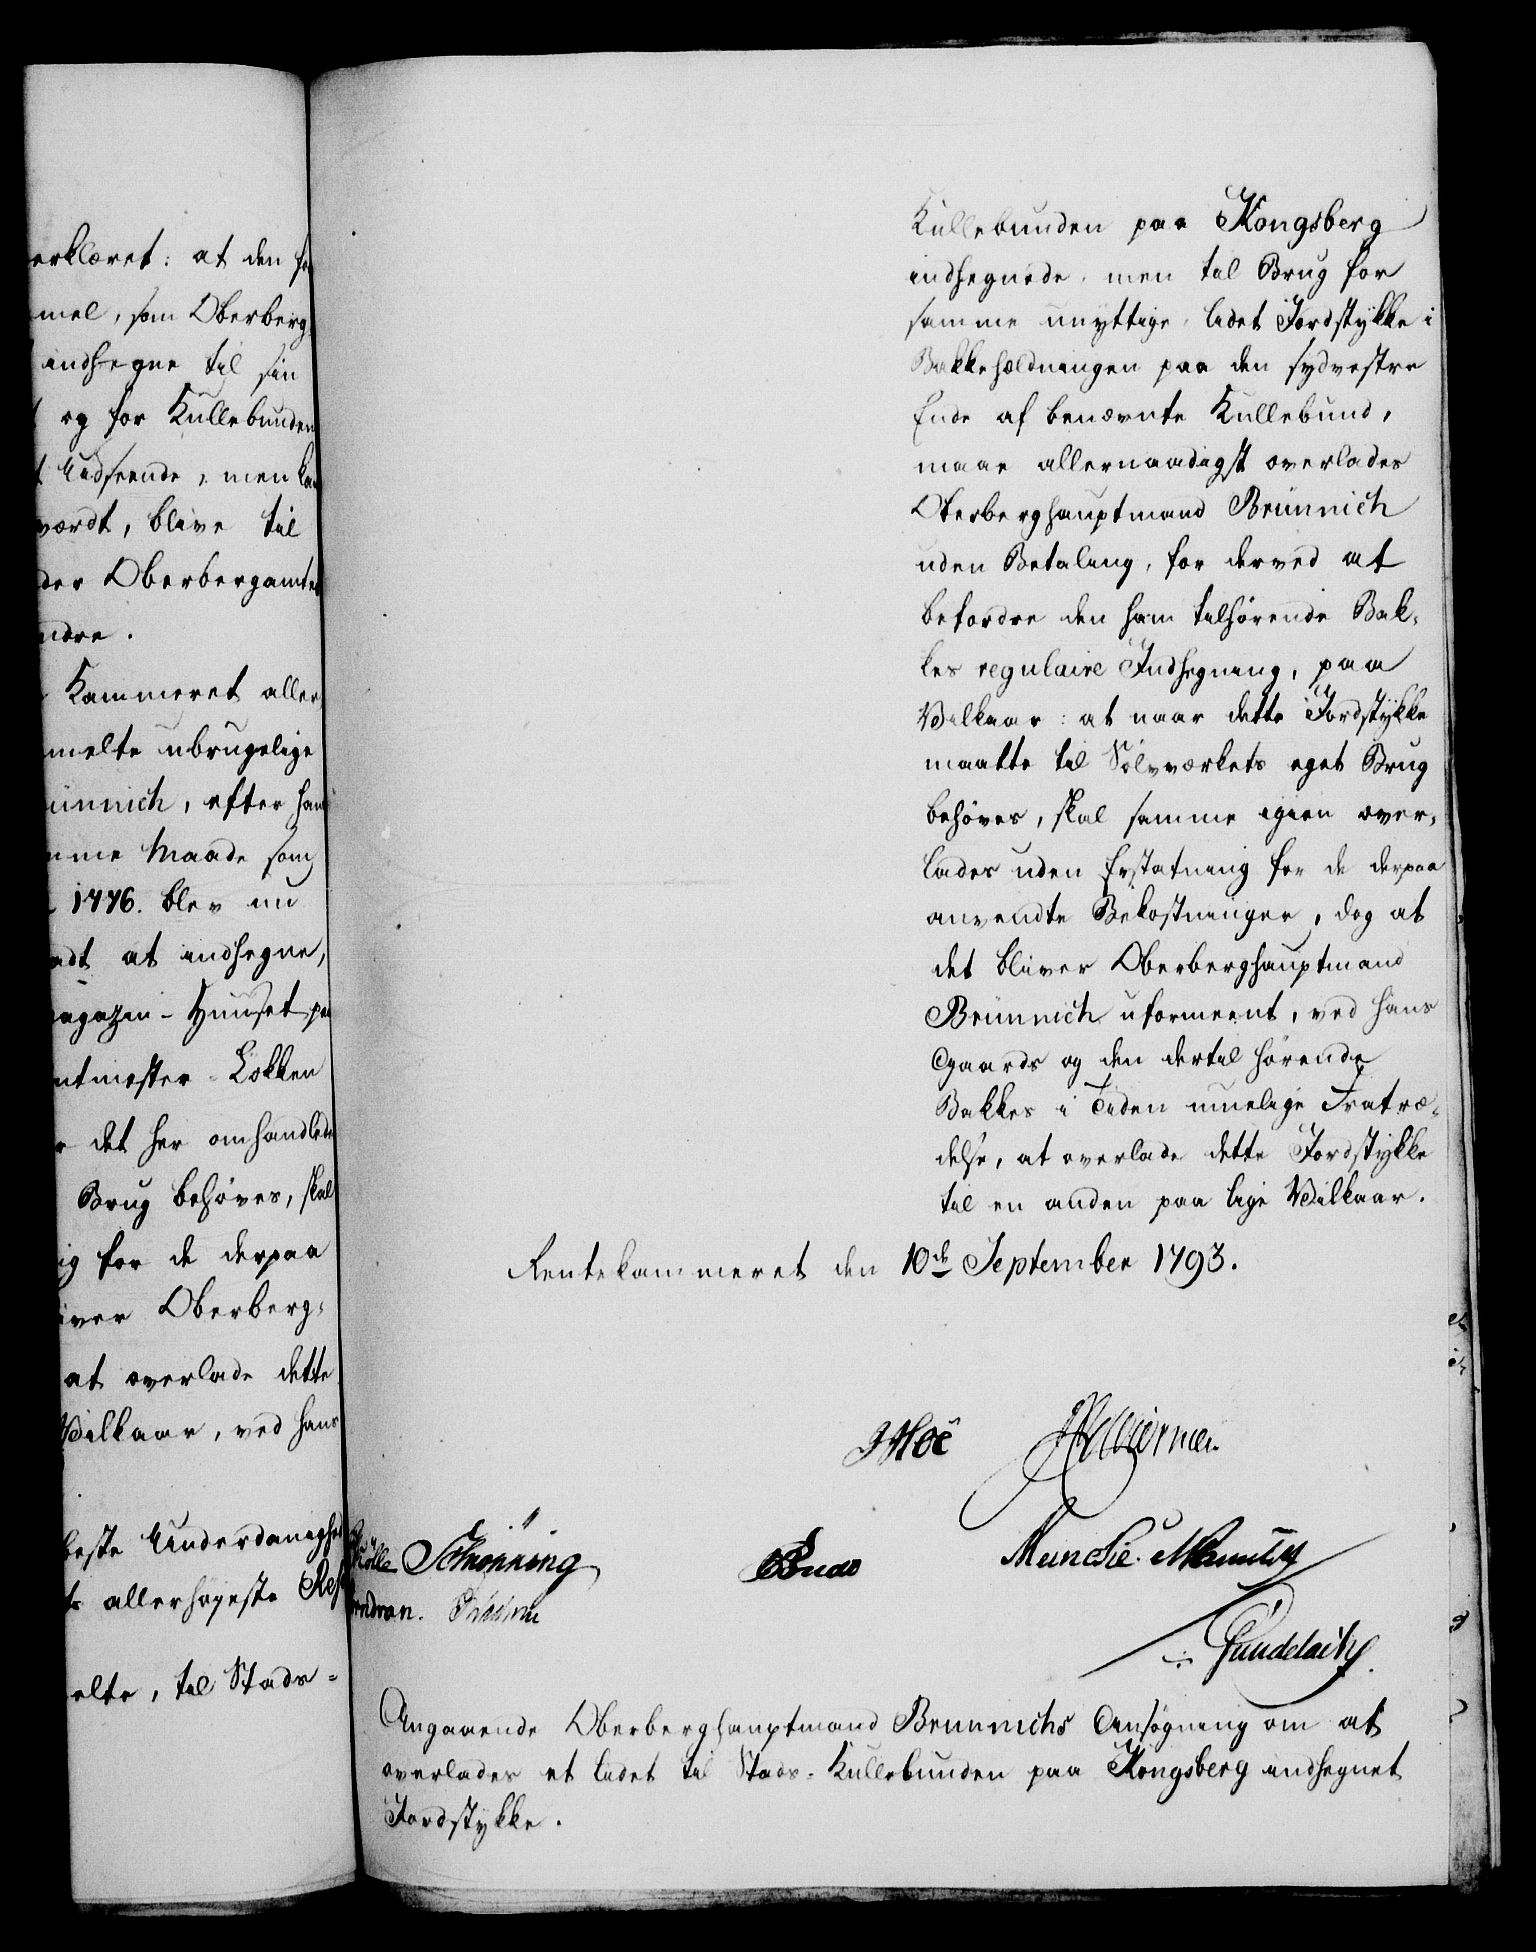 erklæret: at den
mel, som Oberberg
indhegne til sin
og for Kullebunden
Udseende, men
værdt, blive til
der Oberbergamtet
ndre.
Kammeret aller
melte ubrugelige
ünnich, efter han
mme Maade som
1776. blev nu
adt at indhegne,
agazin-Huuset paa
ntmester Løkken
det her omhandlede
Brug behøves, skal
ig for de derpaa
iver Oberberg-
at overlade dette
Vilkaar, ved hans
beste Underdanighed
ts allerhøyeste Res
elte, til Stads-
Kullebunden paa Kongsberg
indhegnede, men til Brug for
samme unyttige lidet Jordstykke i
Bakkehældningen paa den sydvestre
Ende af benævnte Kullebund,
maae allernaadigst overlades
Oberberghauptmand Brünnich
uden Betaling, for derved at
befordre den ham tilhørende Bak-
kes regulaire Indhegning, paa
Vilkaar: at naar dette Jordstykke
maatte til Sølvværkets eget Brug
behøves, skal samme igien over-
lades uden Erstatning for de derpaa
anvendte Bekostninger, dog at
det bliver Oberberghauptmand
Brünnich uformeent, ved hans
Gaards og den dertil hørende
Bakkes i Tiden muelige Fratræ-
delse, at overlade dette Jordstykke
til en anden paa lige Vilkaar.
Rentekammeret den 10de September 1793.
JHoë
Schønning
Müncke.
Gundelach
Angaaende Oberberghauptmand Brünnichs Ansøgning om at
overlades et lidet til Stads-Kullebunden paa Kongsberg indhegnet
Jordstykke.